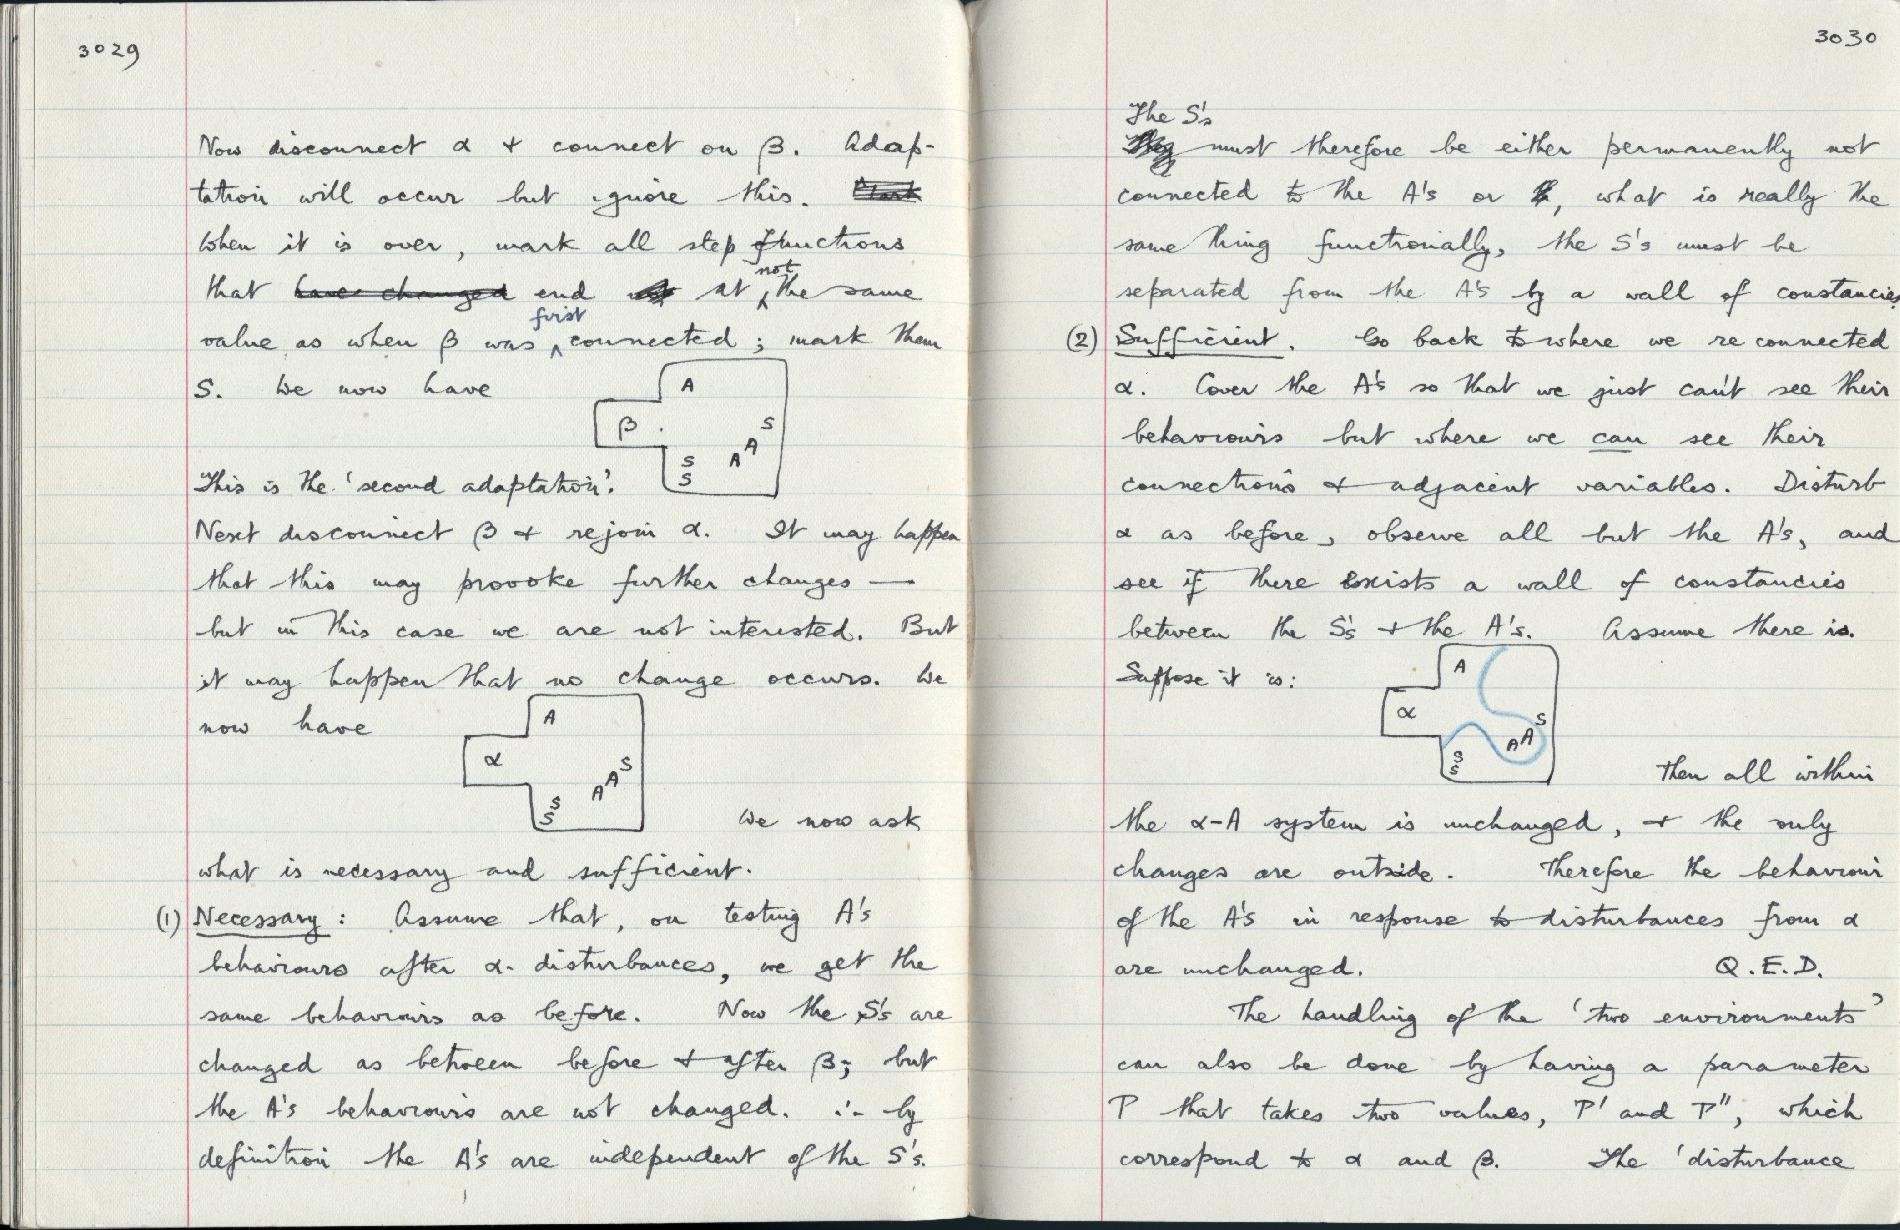 3029
Now disconnect α + connect on β. Adap-
tation will occur but ignore this.
When it is over, mark all step functions
that have changed end at not the same
value as when β was first connected; mark them
S. We now have
A
β .
S
A
A
S
S
This is the 'second adaptation'.
Next disconnect β + rejoin α. It may happen
that this may provoke further changes —
but in this case we are not interested. But
it may happen that no change occurs. We
now have
A
α
S
A
A
S
S
We now ask
what is necessary and sufficient.
(1) Necessary: Assume that, on testing A's
behaviours after α-disturbances, we get the
same behaviours as before. Now the S's are
changed as between before + after β; but
the A's behaviours are not changed. ∴ by
definition the A's are independent of the S's.
3030
The S's
must therefore be either permanently not
connected to the A's or, what is really the
same thing functionally, the S's must be
separated from the A's by a wall of constancies.
(2) Sufficient. Go back to where we reconnected
α. Cover the A's so that we just can't see their
behaviours but where we can see their
connections + adjacent variables. Disturb
α as before, observe all but the A's, and
see if there exists a wall of constancies
between the S's + the A's. Assume there is.
Suppose it is:
A
α
S
A
A
S
S
Then all within
the α-A system is unchanged, + the only
changes are outside. Therefore the behaviour
of the A's in response to disturbances from α
are unchanged. Q.E.D.
The handling of the 'two environments'
can also be done by having a parameter
P that takes two values, P' and P", which
correspond to α and β. The 'disturbance